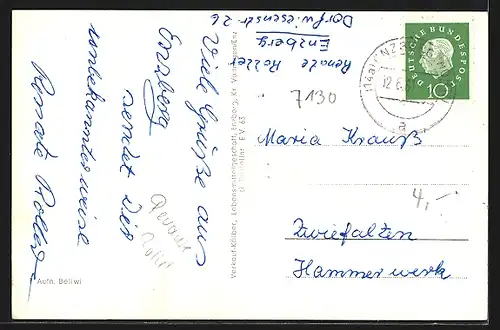 Renate Roller
Enzberg
Dorfwiesenstr 26
Viele Grüße aus
Enzberg
sendet Dir
unbekannterweise
Renate Roller
Aufn. Beliwi
Verkauf-Kölber, Lebensmittelgeschäft, Enzberg, Kr. Vaihingen/Enz
EV 63
DEUTSCHE BUNDESPOST
10
(14a) ENZBERG
12.6.
a
7130
Maria Krauß
4,-
Zwiefalten
Hammerwerk